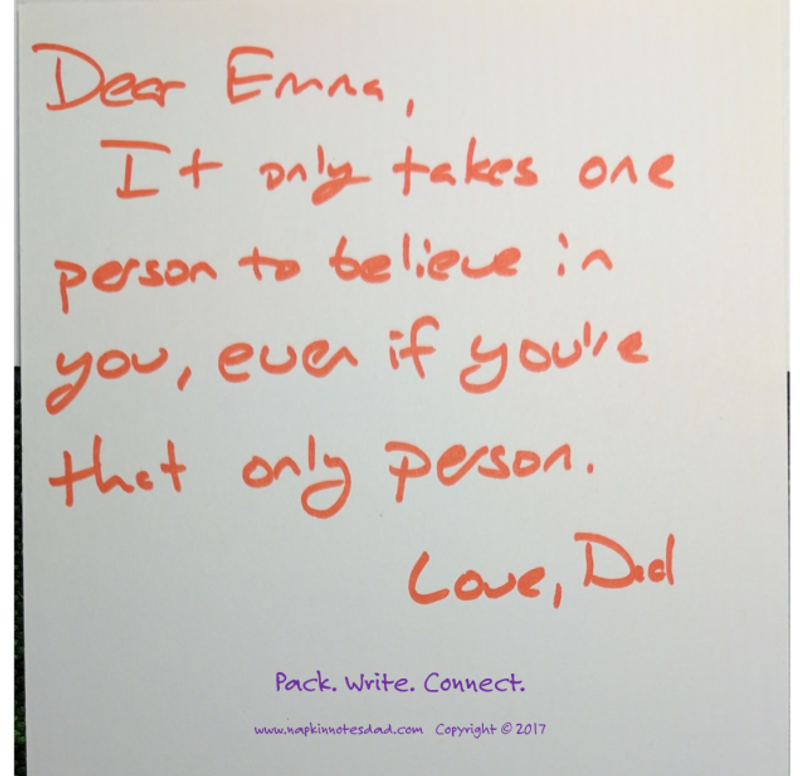 Dear Emma,
It only takes one
person to believe in
you, even if you're
that only person.
Love, Dad
Pack. Write. Connect.
www.napkinnotesdad.com Copyright © 2017